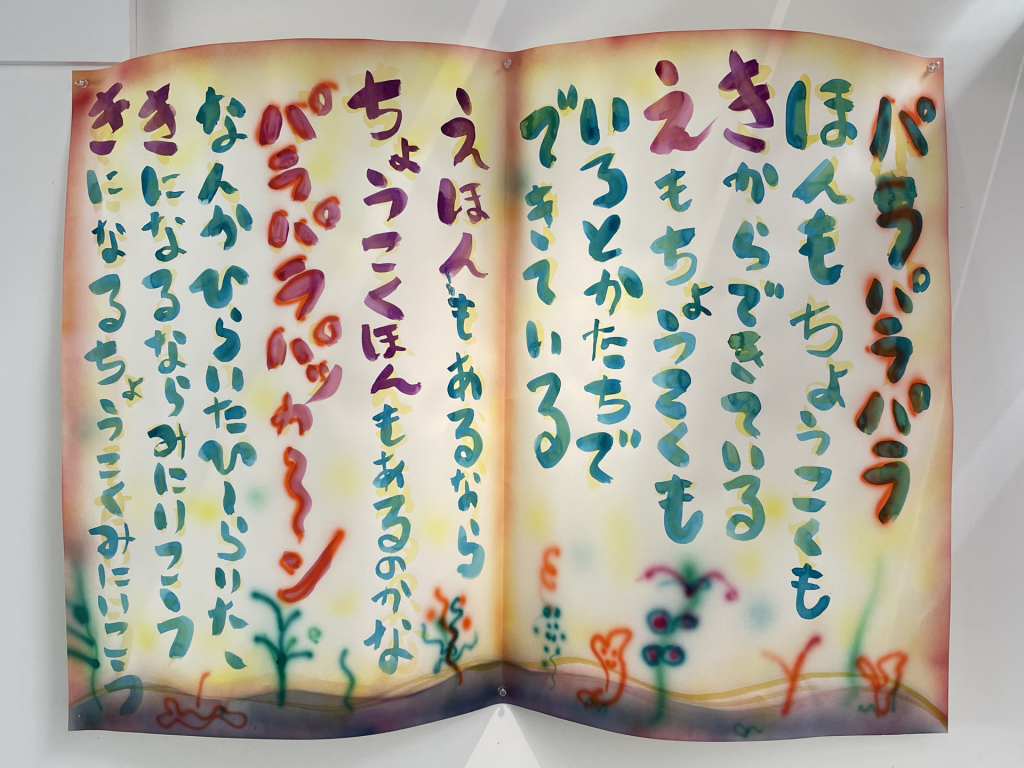 パラパラパラ
ほんも ちょうこくも
きからできている
えもちょうこくも
いろとかたちで
できている
えほんもあるなら
ちょうこくほんもあるのかな
パラパラパッカ〜ン
なんかひらいたひ〜らいた、
きになるならみにいこう
きになるちょうこくみにいこう